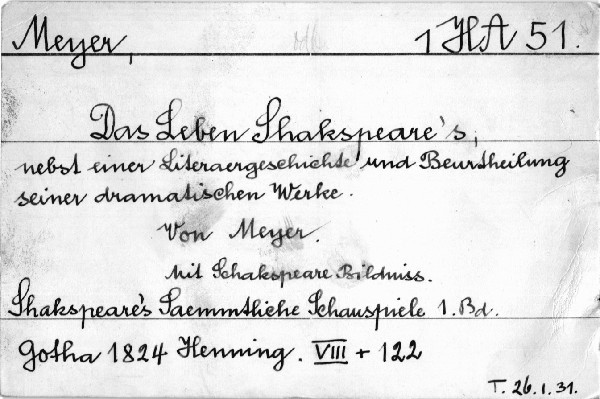 Meyer, 1 HA 51.
Das Leben Shakspeare's,
nebst einer Literaergeschichte und Beurtheilung
seiner dramatischen Werke.
Von Meyer.
Mit Schakspeare Bildniss.
Shakspeare's Saemmtliche Schauspiele 1. Bd.
Gotha 1824 Henning. VIII + 122
T. 26.1.31.